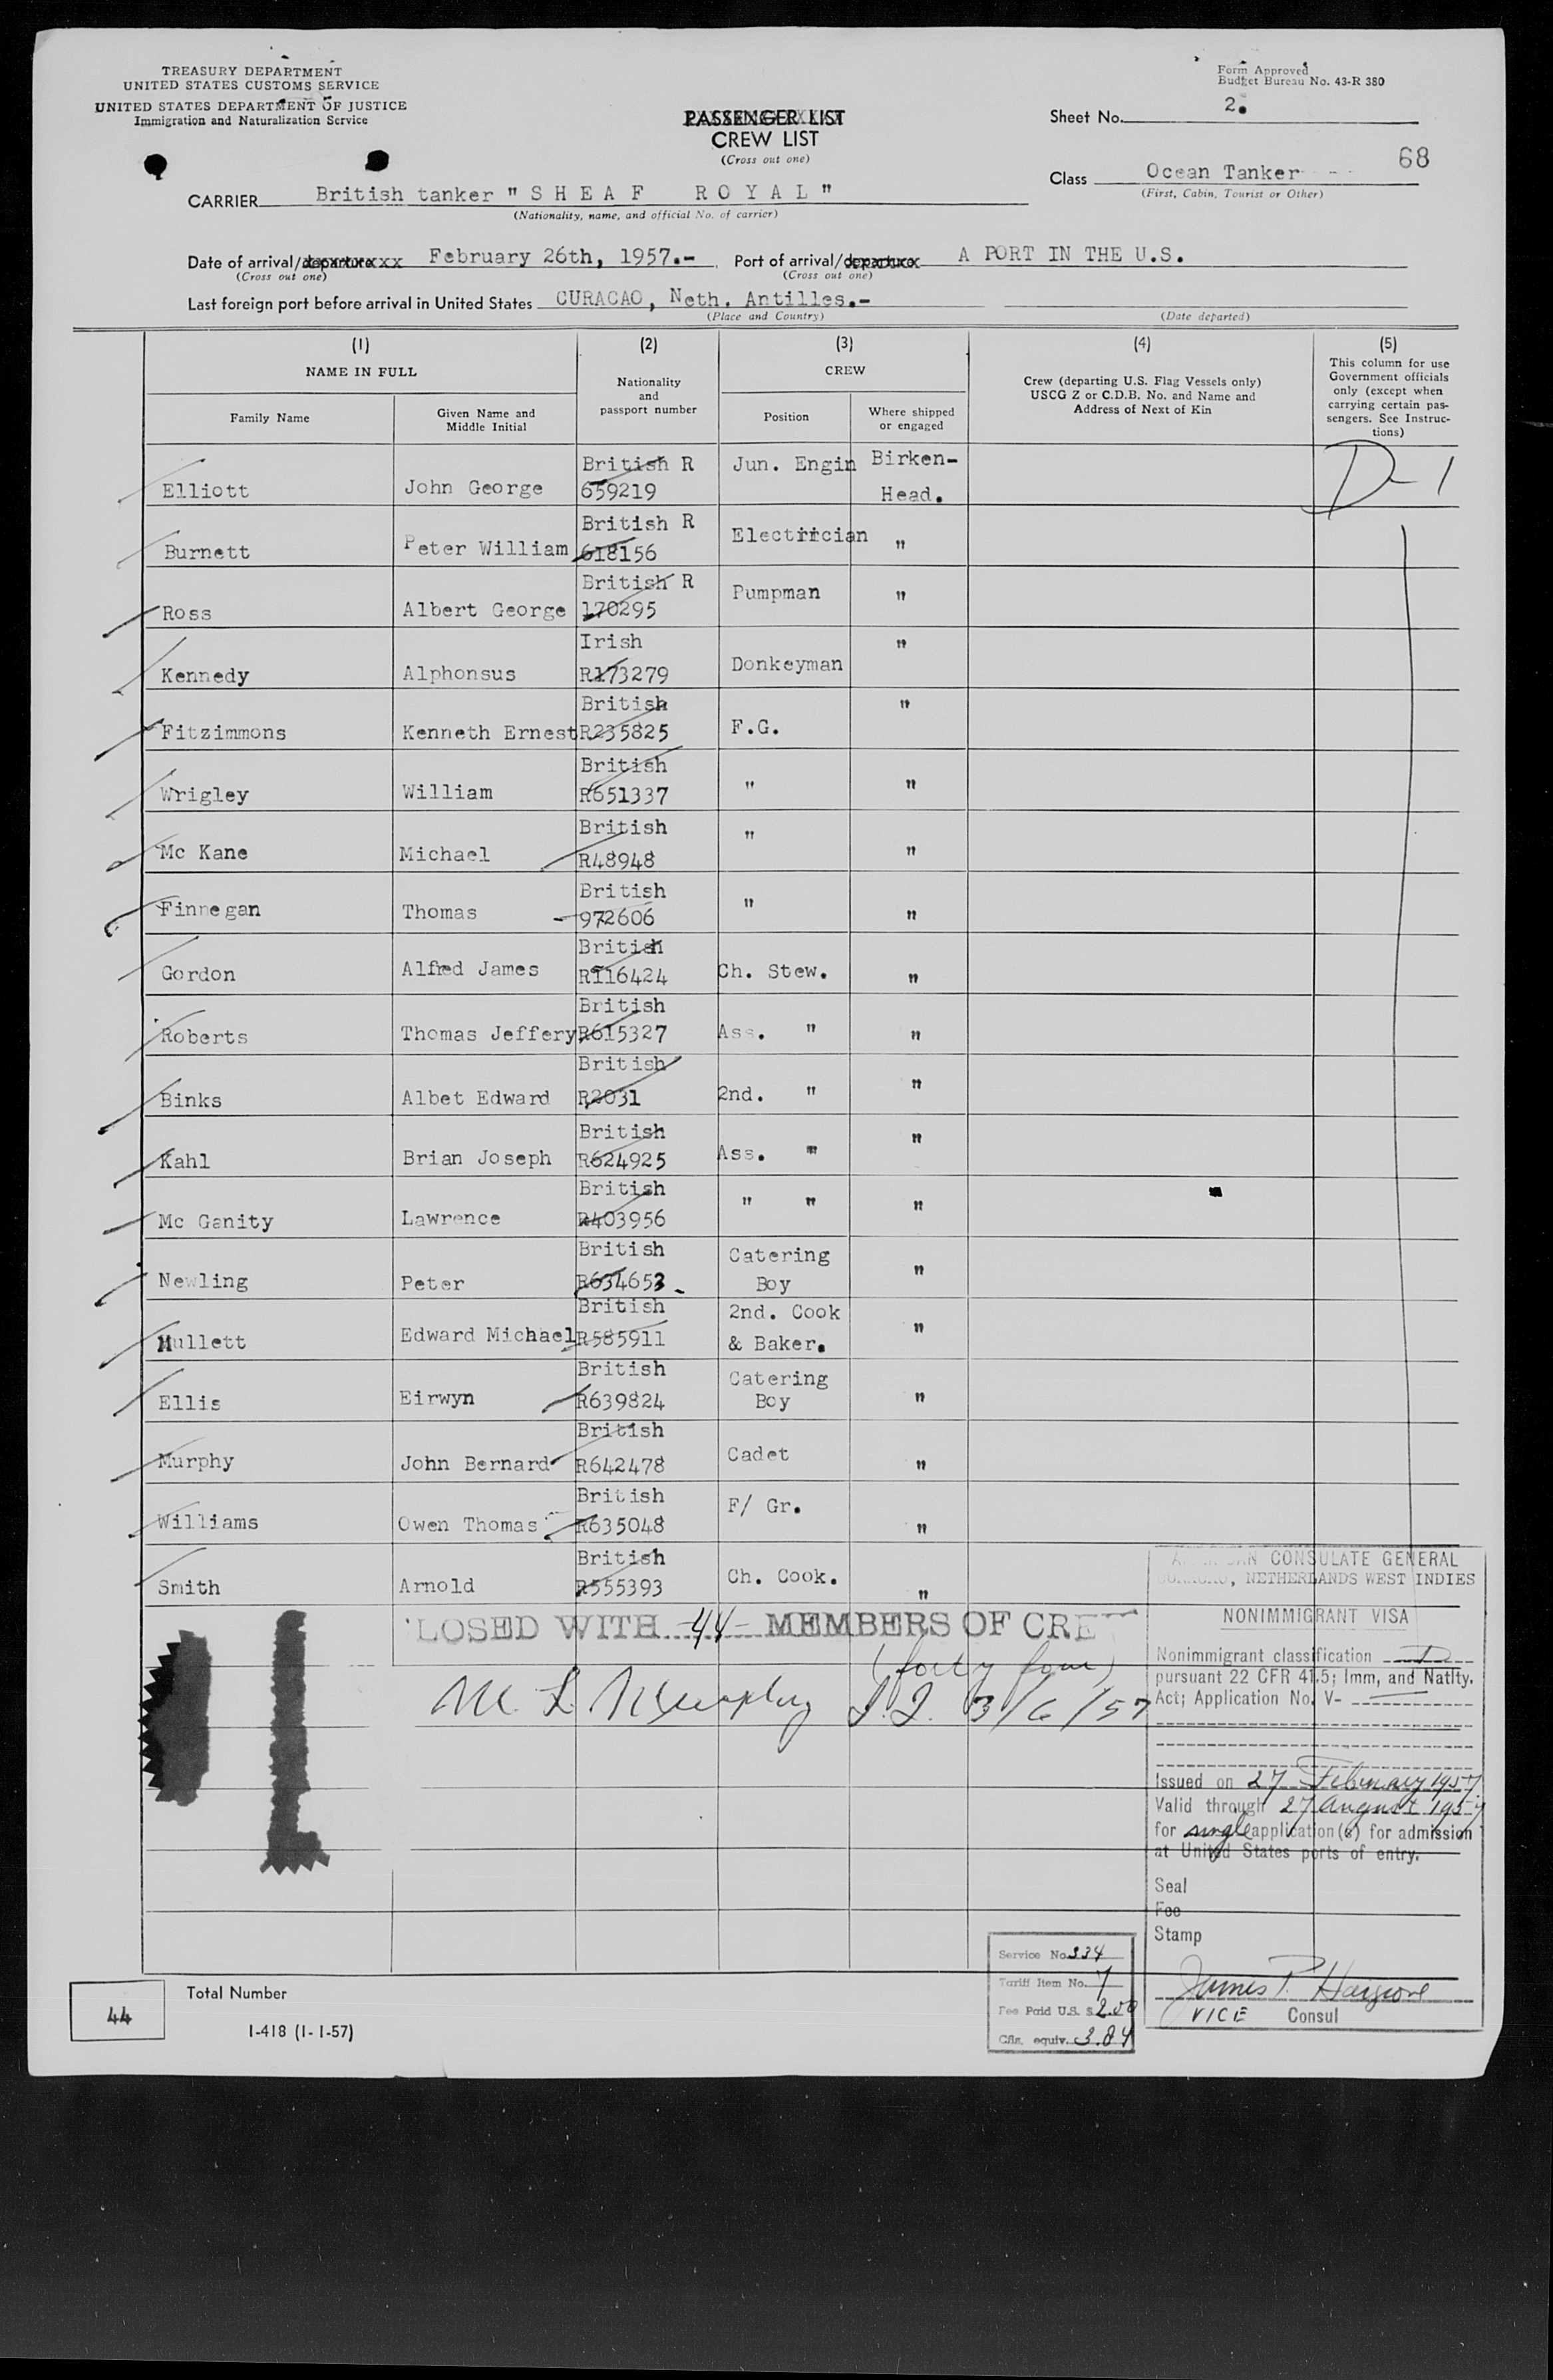 TREASURY DEPARTMENT
UNITED STATES CUSTOMS SERVICE
UNITED STATES DEPARTMENT OF JUSTICE
Immigration and Naturalization Service
Form Approved
Budget Bureau No. 43-R 380
PASSENGER LIST
CREW LIST
(Cross out one)
Sheet No. 2.
68
Class Ocean Tanker
(First, Cabin, Tourist or Other)
CARRIER British tanker "S H E A F R O Y A L"
(Nationality, name, and official No. of carrier)
Date of arrival/departure February 26th, 1957.- Port of arrival/departure A PORT IN THE U.S.
(Cross out one) (Cross out one)
Last foreign port before arrival in United States CURACAO, Neth. Antilles.-
(Place and Country) (Date departed)
(1) (2) (3) (4) (5)
NAME IN FULL
Family Name
Given Name and Middle Initial
Nationality and passport number
CREW
Position
Where shipped or engaged
Crew (departing U.S. Flag Vessels only)
USCG Z or C.D.B. No. and Name and
Address of Next of Kin
This column for use
Government officials
only (except when
carrying certain pas-
sengers. See Instruc-
tions)
Elliott John George British R 659219 Jun. Engin Birken-Head. D-1
Burnett Peter William British R 618156 Electrician "
Ross Albert George British R 170295 Pumpman "
Kennedy Alphonsus Irish R173279 Donkeyman "
Fitzimmons Kenneth Ernest British R235825 F.G. "
Wrigley William British R651337 " "
Mc Kane Michael British R48948 " "
Finnegan Thomas British 972606 " "
Gordon Alfred James British R116424 Ch. Stew. "
Roberts Thomas Jeffery British R615327 Ass. " "
Binks Albet Edward British R2031 2nd. " "
Kahl Brian Joseph British R624925 Ass. " "
Mc Ganity Lawrence British R403956 " " "
Newling Peter British R634653 Catering Boy "
Mullett Edward Michael British R585911 2nd. Cook & Baker. "
Ellis Eirwyn British R639824 Catering Boy "
Murphy John Bernard British R642478 Cadet "
Williams Owen Thomas British R635048 F/ Gr. "
Smith Arnold British R555393 Ch. Cook. "
LOSED WITH -44- MEMBERS OF CRE
(forty four)
3/6/57
CONSULATE GENERAL
, NETHERLANDS WEST INDIES
NONIMMIGRANT VISA
Nonimmigrant classification D
pursuant 22 CFR 41.5; Imm, and Natlty.
Act; Application No. V-
Issued on 27 February 1957
Valid through 27 August 1957
for single application(s) for admission
at United States ports of entry.
Seal
Fee
Stamp
James P. Hargrove
VICE Consul
Service No. 334
Tariff Item No. 7
Fee Paid U.S. $ 2.00
Gfls. equiv. 3.84
44
Total Number
I-418 (1-1-57)